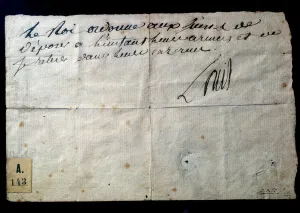 Le Roi ordonne aux Suisses de
déposer à l'instant leurs armes et de
se retirer dans leurs casernes
Louis
A.
143